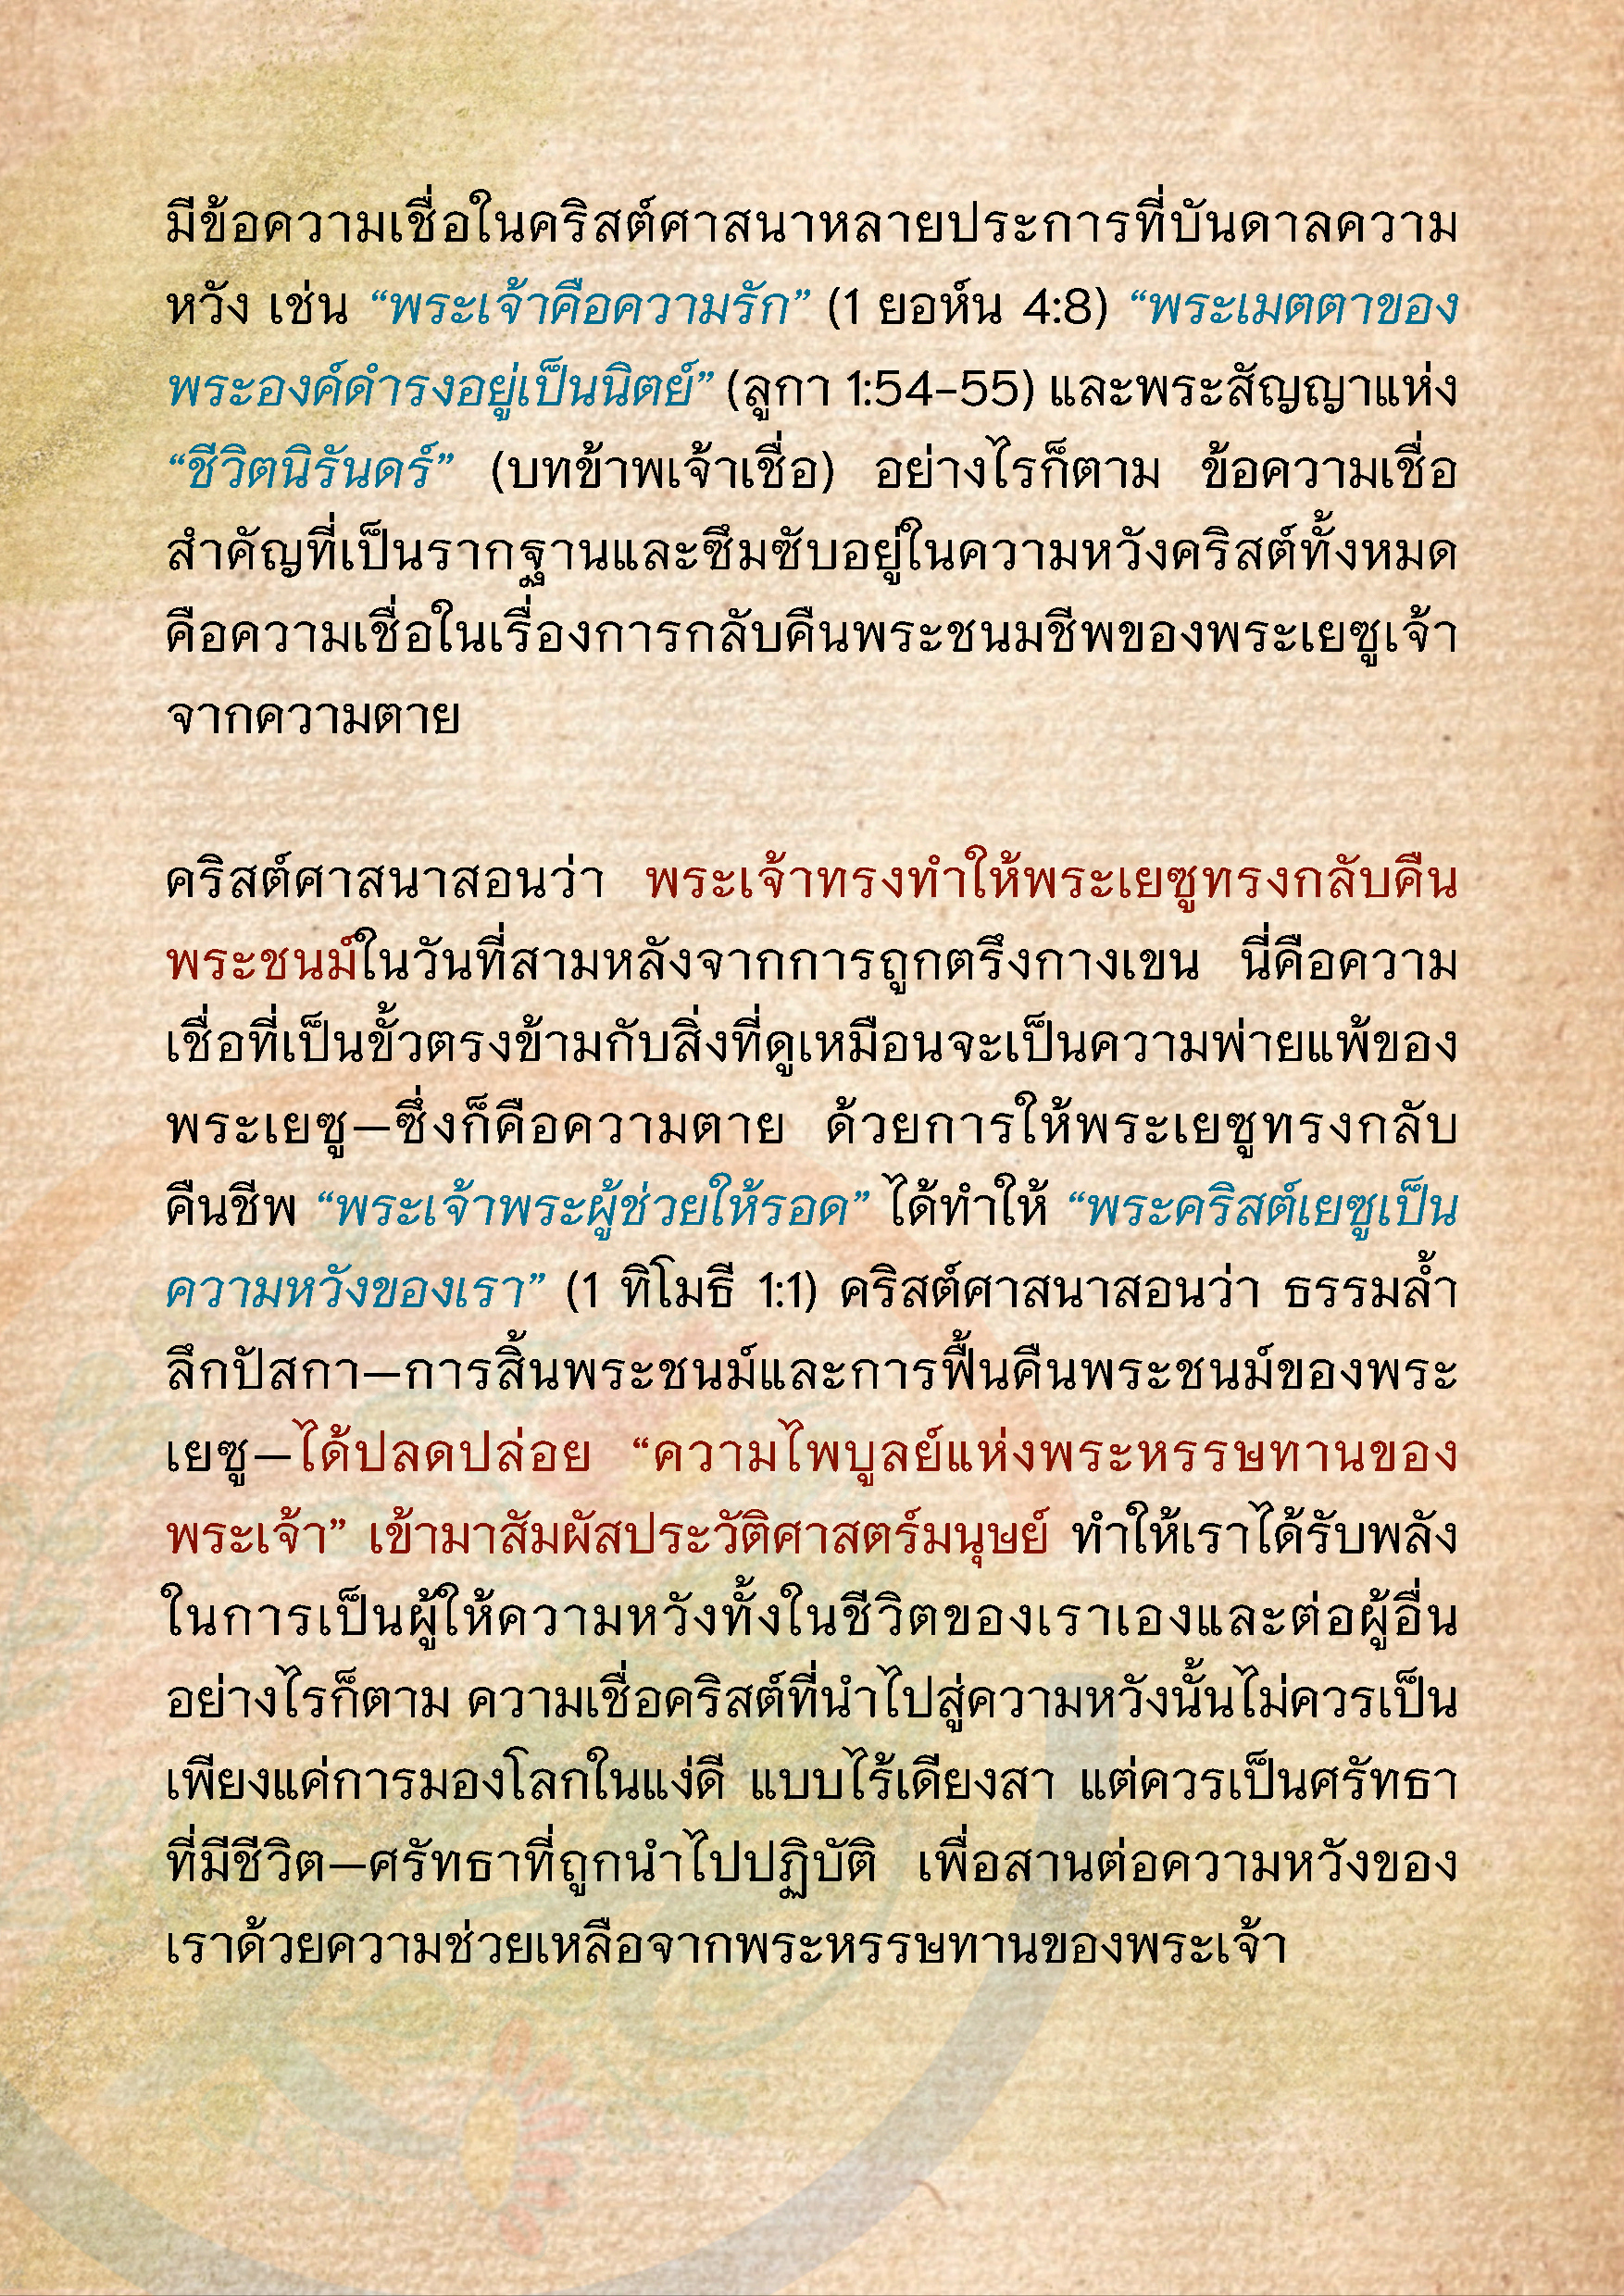 มีข้อความเชื่อในคริสต์ศาสนาหลายประการที่บันดาลความ
หวัง เช่น “พระเจ้าคือความรัก” (1 ยอห์น 4:8) “พระเมตตาของ
พระองค์ดำรงอยู่เป็นนิตย์” (ลูกา 1:54-55) และพระสัญญาแห่ง
“ชีวิตนิรันดร์” (บทข้าพเจ้าเชื่อ) อย่างไรก็ตาม ข้อความเชื่อ
สำคัญที่เป็นรากฐานและซึมซับอยู่ในความหวังคริสต์ทั้งหมด
คือความเชื่อในเรื่องการกลับคืนพระชนมชีพของพระเยซูเจ้า
จากความตาย
คริสต์ศาสนาสอนว่า พระเจ้าทรงทำให้พระเยซูทรงกลับคืน
พระชนม์ในวันที่สามหลังจากการถูกตรึงกางเขน นี่คือความ
เชื่อที่เป็นขั้วตรงข้ามกับสิ่งที่ดูเหมือนจะเป็นความพ่ายแพ้ของ
พระเยซู—ซึ่งก็คือความตาย ด้วยการให้พระเยซูทรงกลับ
คืนชีพ “พระเจ้าพระผู้ช่วยให้รอด” ได้ทำให้ “พระคริสต์เยซูเป็น
ความหวังของเรา” (1 ทิโมธี 1:1) คริสต์ศาสนาสอนว่า ธรรมล้ำ
ลึกปัสกา—การสิ้นพระชนม์และการฟื้นคืนพระชนม์ของพระ
เยซู—ได้ปลดปล่อย “ความไพบูลย์แห่งพระหรรษทานของ
พระเจ้า” เข้ามาสัมผัสประวัติศาสตร์มนุษย์ ทำให้เราได้รับพลัง
ในการเป็นผู้ให้ความหวังทั้งในชีวิตของเราเองและต่อผู้อื่น
อย่างไรก็ตาม ความเชื่อคริสต์ที่นำไปสู่ความหวังนั้นไม่ควรเป็น
เพียงแค่การมองโลกในแง่ดี แบบไร้เดียงสา แต่ควรเป็นศรัทธา
ที่มีชีวิต—ศรัทธาที่ถูกนำไปปฏิบัติ เพื่อสานต่อความหวังของ
เราด้วยความช่วยเหลือจากพระหรรษทานของพระเจ้า